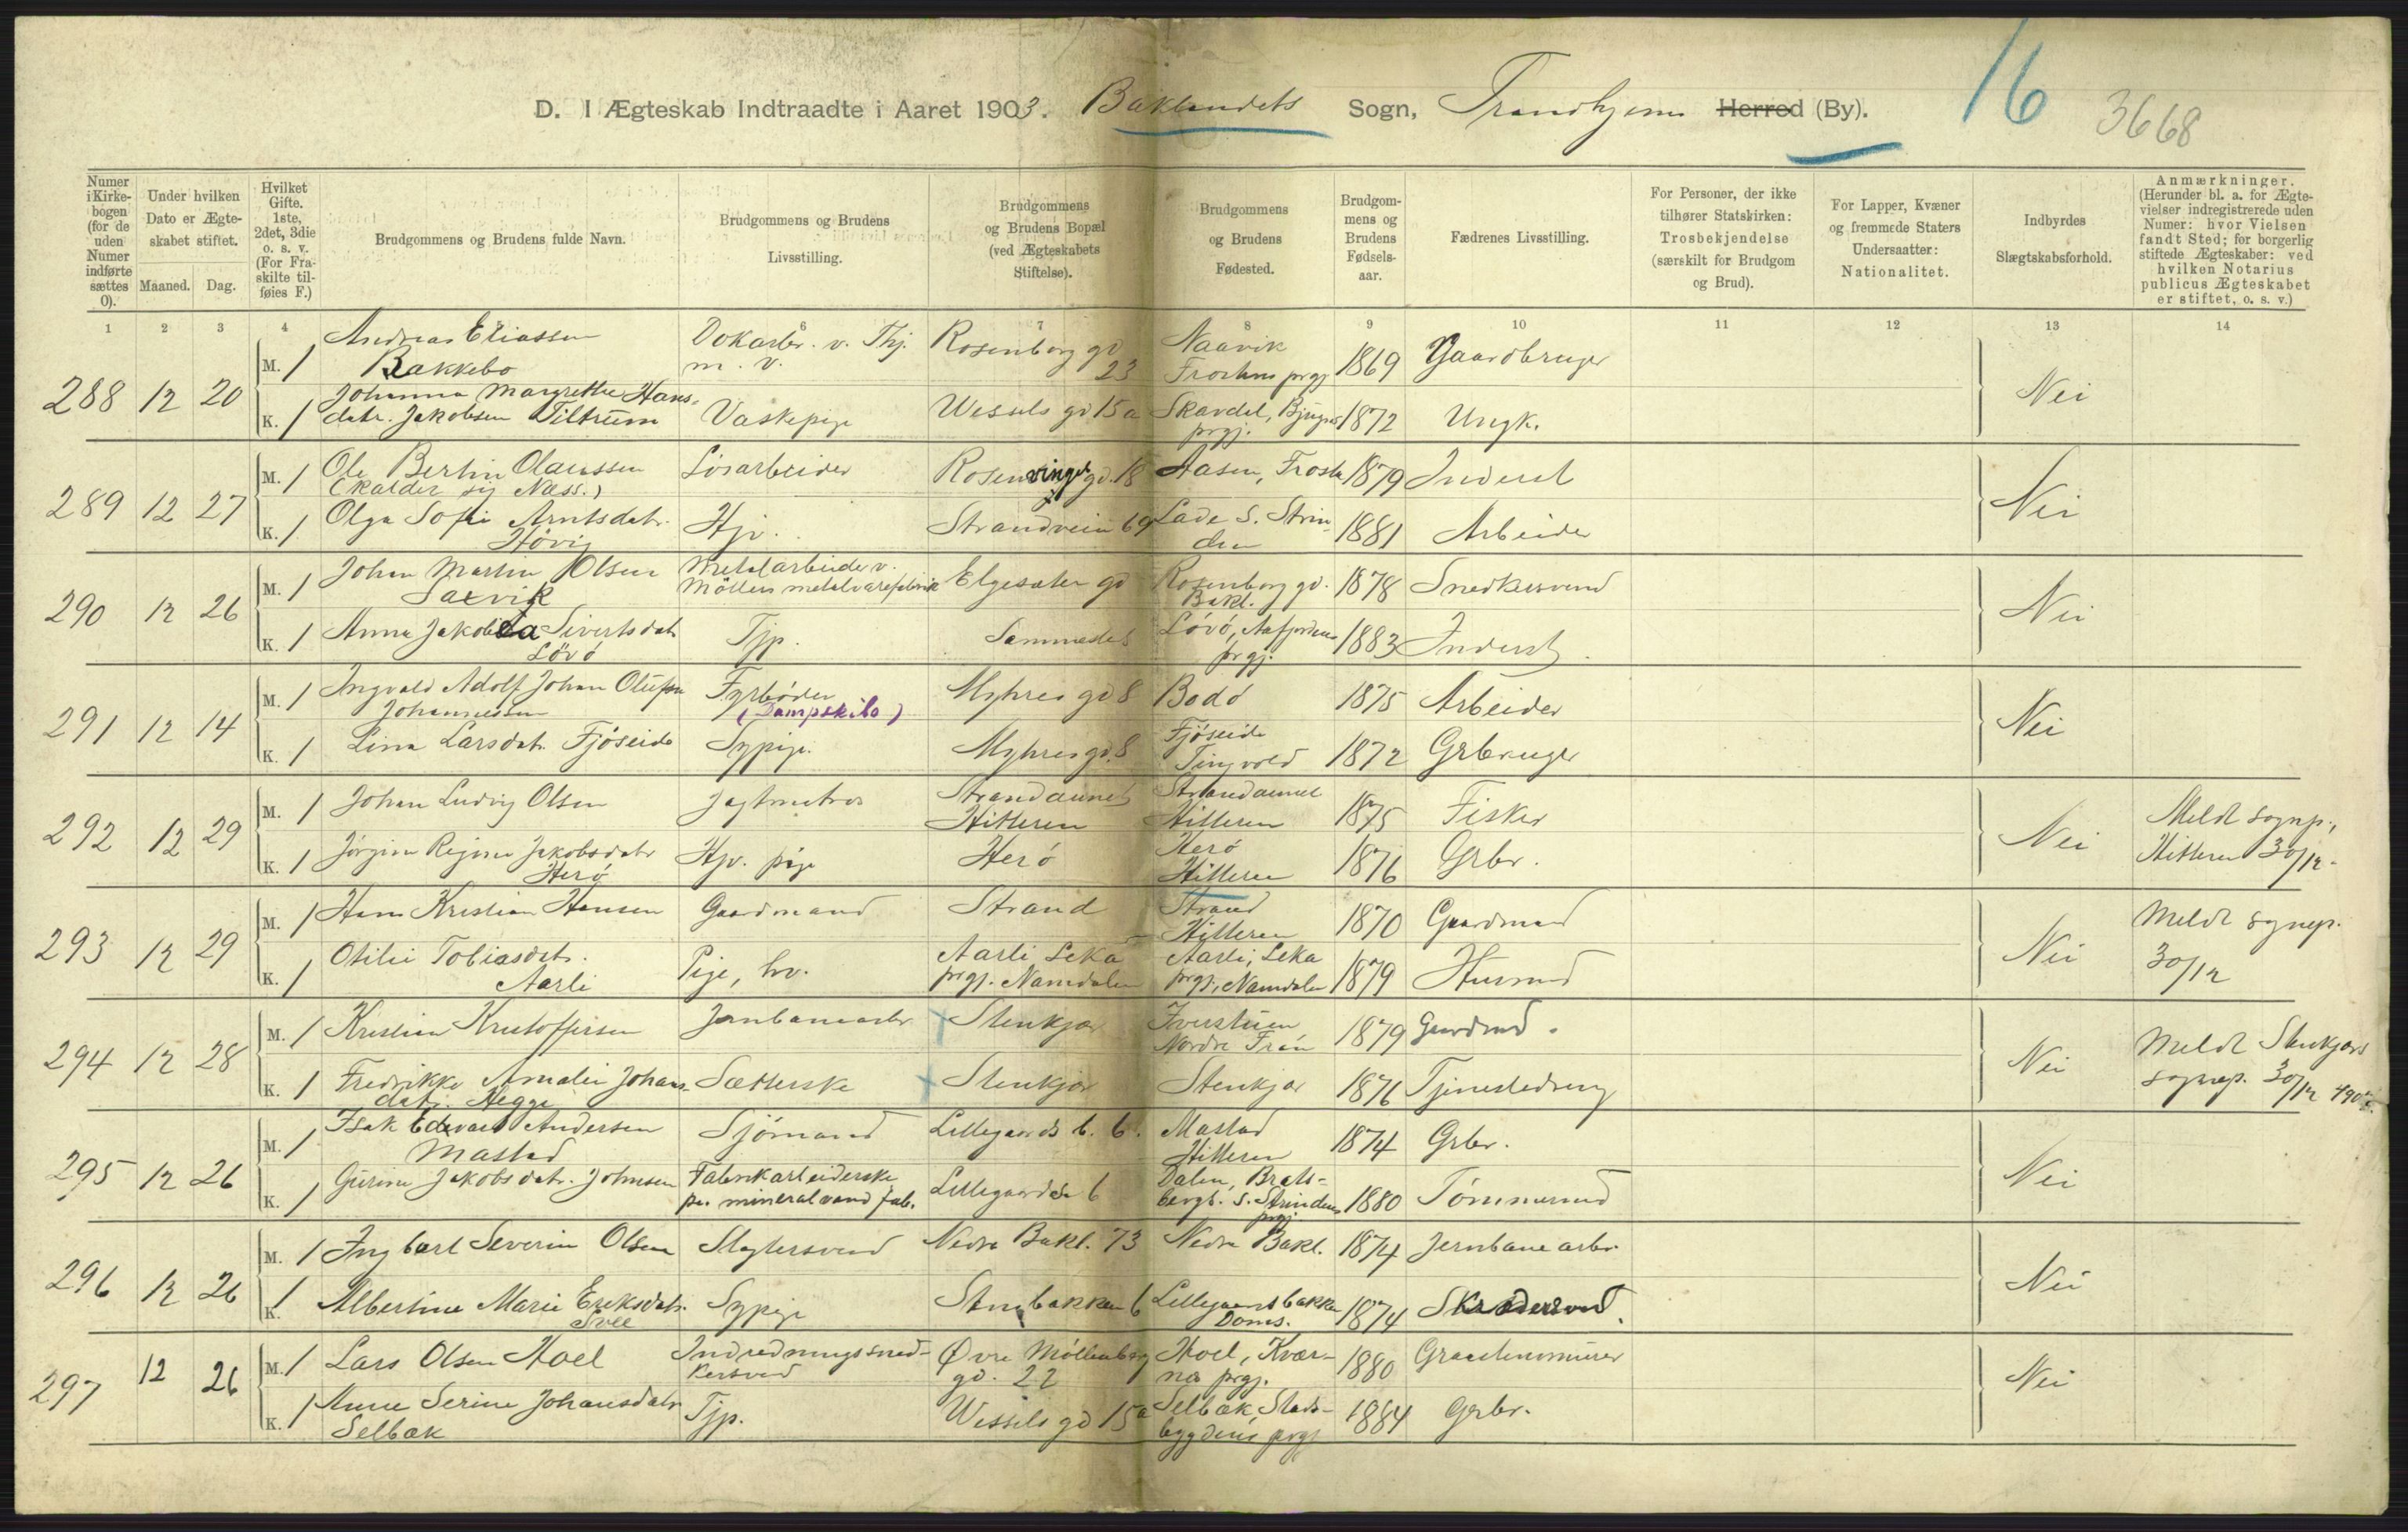 D. I Ægteskab Indtraadte i Aaret 1903. Baklandets Sogn, Trondhjems Herred (By).
16
3668
Numer i Kirke-bogen (for de uden Numer indførte sættes 0).
Under hvilken Dato er Ægte-skabet stiftet.
Maaned. Dag.
Hvilket Gifte. 1ste, 2det, 3die o. s. v. (For Fra-skilte til-føies F.)
Brudgommens og Brudens fulde Navn.
Brudgommens og Brudens Livsstilling.
Brudgommens og Brudens Bopæl (ved Ægteskabets Stiftelse).
Brudgommens og Brudens Fødested.
Brudgom-mens og Brudens Fødsels-aar.
Fædrenes Livsstilling.
For Personer, der ikke tilhører Statskirken: Trosbekjendelse (særskilt for Brudgom og Brud).
For Lapper, Kvæner og fremmede Staters Undersaatter: Nationalitet.
Indbyrdes Slægtskabsforhold.
Anmærkninger. (Herunder bl. a. for Ægte-vielser indregistrerede uden Numer: hvor Vielsen fandt Sted; for borgerlig stiftede Ægteskaber: ved hvilken Notarius publicus Ægteskabet er stiftet, o. s. v.)
1 2 3 4 6 7 8 9 10 11 12 13 14
288 12 20
M. 1 Andreas Eliassen Bakkebo Dokarbr. v. Thj. m. v. Rosenborg gd 23 Naavik Frostens prgj 1869 Gaardbruger
K. 1 Johanna Margrethe Hans-datr. Jakobsen Tiltrum Vaskepige Wessels gd 15a Skavdal, Bjugns prgj. 1872 Ungk.
Nei
289 12 27
M. 1 Ole Bertin Olaussen (kalder sig Næss.) Løsarbeider Rosenvinges gd. 18 Aasen, Frosta 1879 Inderst
K. 1 Olga Sofie Arntsdatr. Høvig Hjv. Strandveien 69 Lade S. Strinden 1881 Arbeider
Nei
290 12 26
M. 1 Johan Martin Olsen Saxvik Metalarbeider v. Møllers metalvarefabrik Elgesæter gd Rosenborg gd. Bakl. 1878 Snedkersvend
K. 1 Anna Jakobea Sivertsdatr Løvø Tjp. Sammesteds Løvø, Aafjordens prgj. 1883 Inderst
Nei
291 12 14
M. 1 Ingvald Adolf Johan Olufsen Johannessen Fyrbøder (Dampskibs) Myhres gd 8 Bodø 1875 Arbeider
K. 1 Lina Larsdatr. Fjøseide Sypige. Myhres gd. 8 Fjøseide Tingvold 1872 Grbruger
Nei
292 12 29
M. 1 Johan Ludvig Olsen Jagtmatros Strandaunet Hitteren Strandaunet Hitteren 1875 Fisker
K. 1 Jørgine Regine Jakobsdatr Herø Hjv. pige Herø Herø Hitteren 1876 Grbr.
Nei
Meldt sognep., Hitteren 30/12.
293 12 29
M. 1 Hans Kristian Hansen Gaardmand Strand Strand Hitteren 1870 Gaardmand
K. 1 Otilie Tobiasdatr. Aarli Pige, hv. Aarli, Leka prgj. Namdalen Aarli, Leka prgj., Namdalen 1879 Husmd
Nei
Meldt sognep. 30/12
294 12 28
M. 1 Kristian Kristoffersen Jernbanearbr Stenkjær Iverstuen Nordre Fron 1879 Gaardmd.
K. 1 Fredrikke Amalie Johans-datr. Hegge Sætterske Stenkjær Stenkjær 1876 Tjenestedreng
Nei
Meldt Stenkjærs sognep. 30/12 1903.
295 12 26
M. 1 Isak Edevart Andersen Mastad Sjømand Lillegaards b. 6. Mastad Hitteren 1874 Grbr.
K. 1 Gurine Jakobsdatr. Johnsen Fabrikarbeiderske pr. mineralvand fab. Lillegaards b 6 Dalen, Brats-bergs. S. Strindens prgj. 1880 Tømmermd
Nei
296 12 26
M. 1 Ingbart Severin Olsen Slagtersvend Nedre Bakl. 73 Nedre Bakl. 1874 Jernbanearbr.
K. 1 Albertine Marie Eriksdatr. Svee Sypige Stenbakken 6 Lillegaardsbakken Doms. 1874 Skrædersvend.
Nei
297 12 26
M. 1 Lars Olsen Hoel Indredningssned-kersvend Øvre Møllenberg gd. 22 Hoel, Kvær-nes prgj. 1880 Graastensmurer
K. 1 Anne Serine Johansdatr Selbæk Tjp. Wessels gd 15a Selbæk, Stads-bygdens prgj 1884 Grbr.
Nei